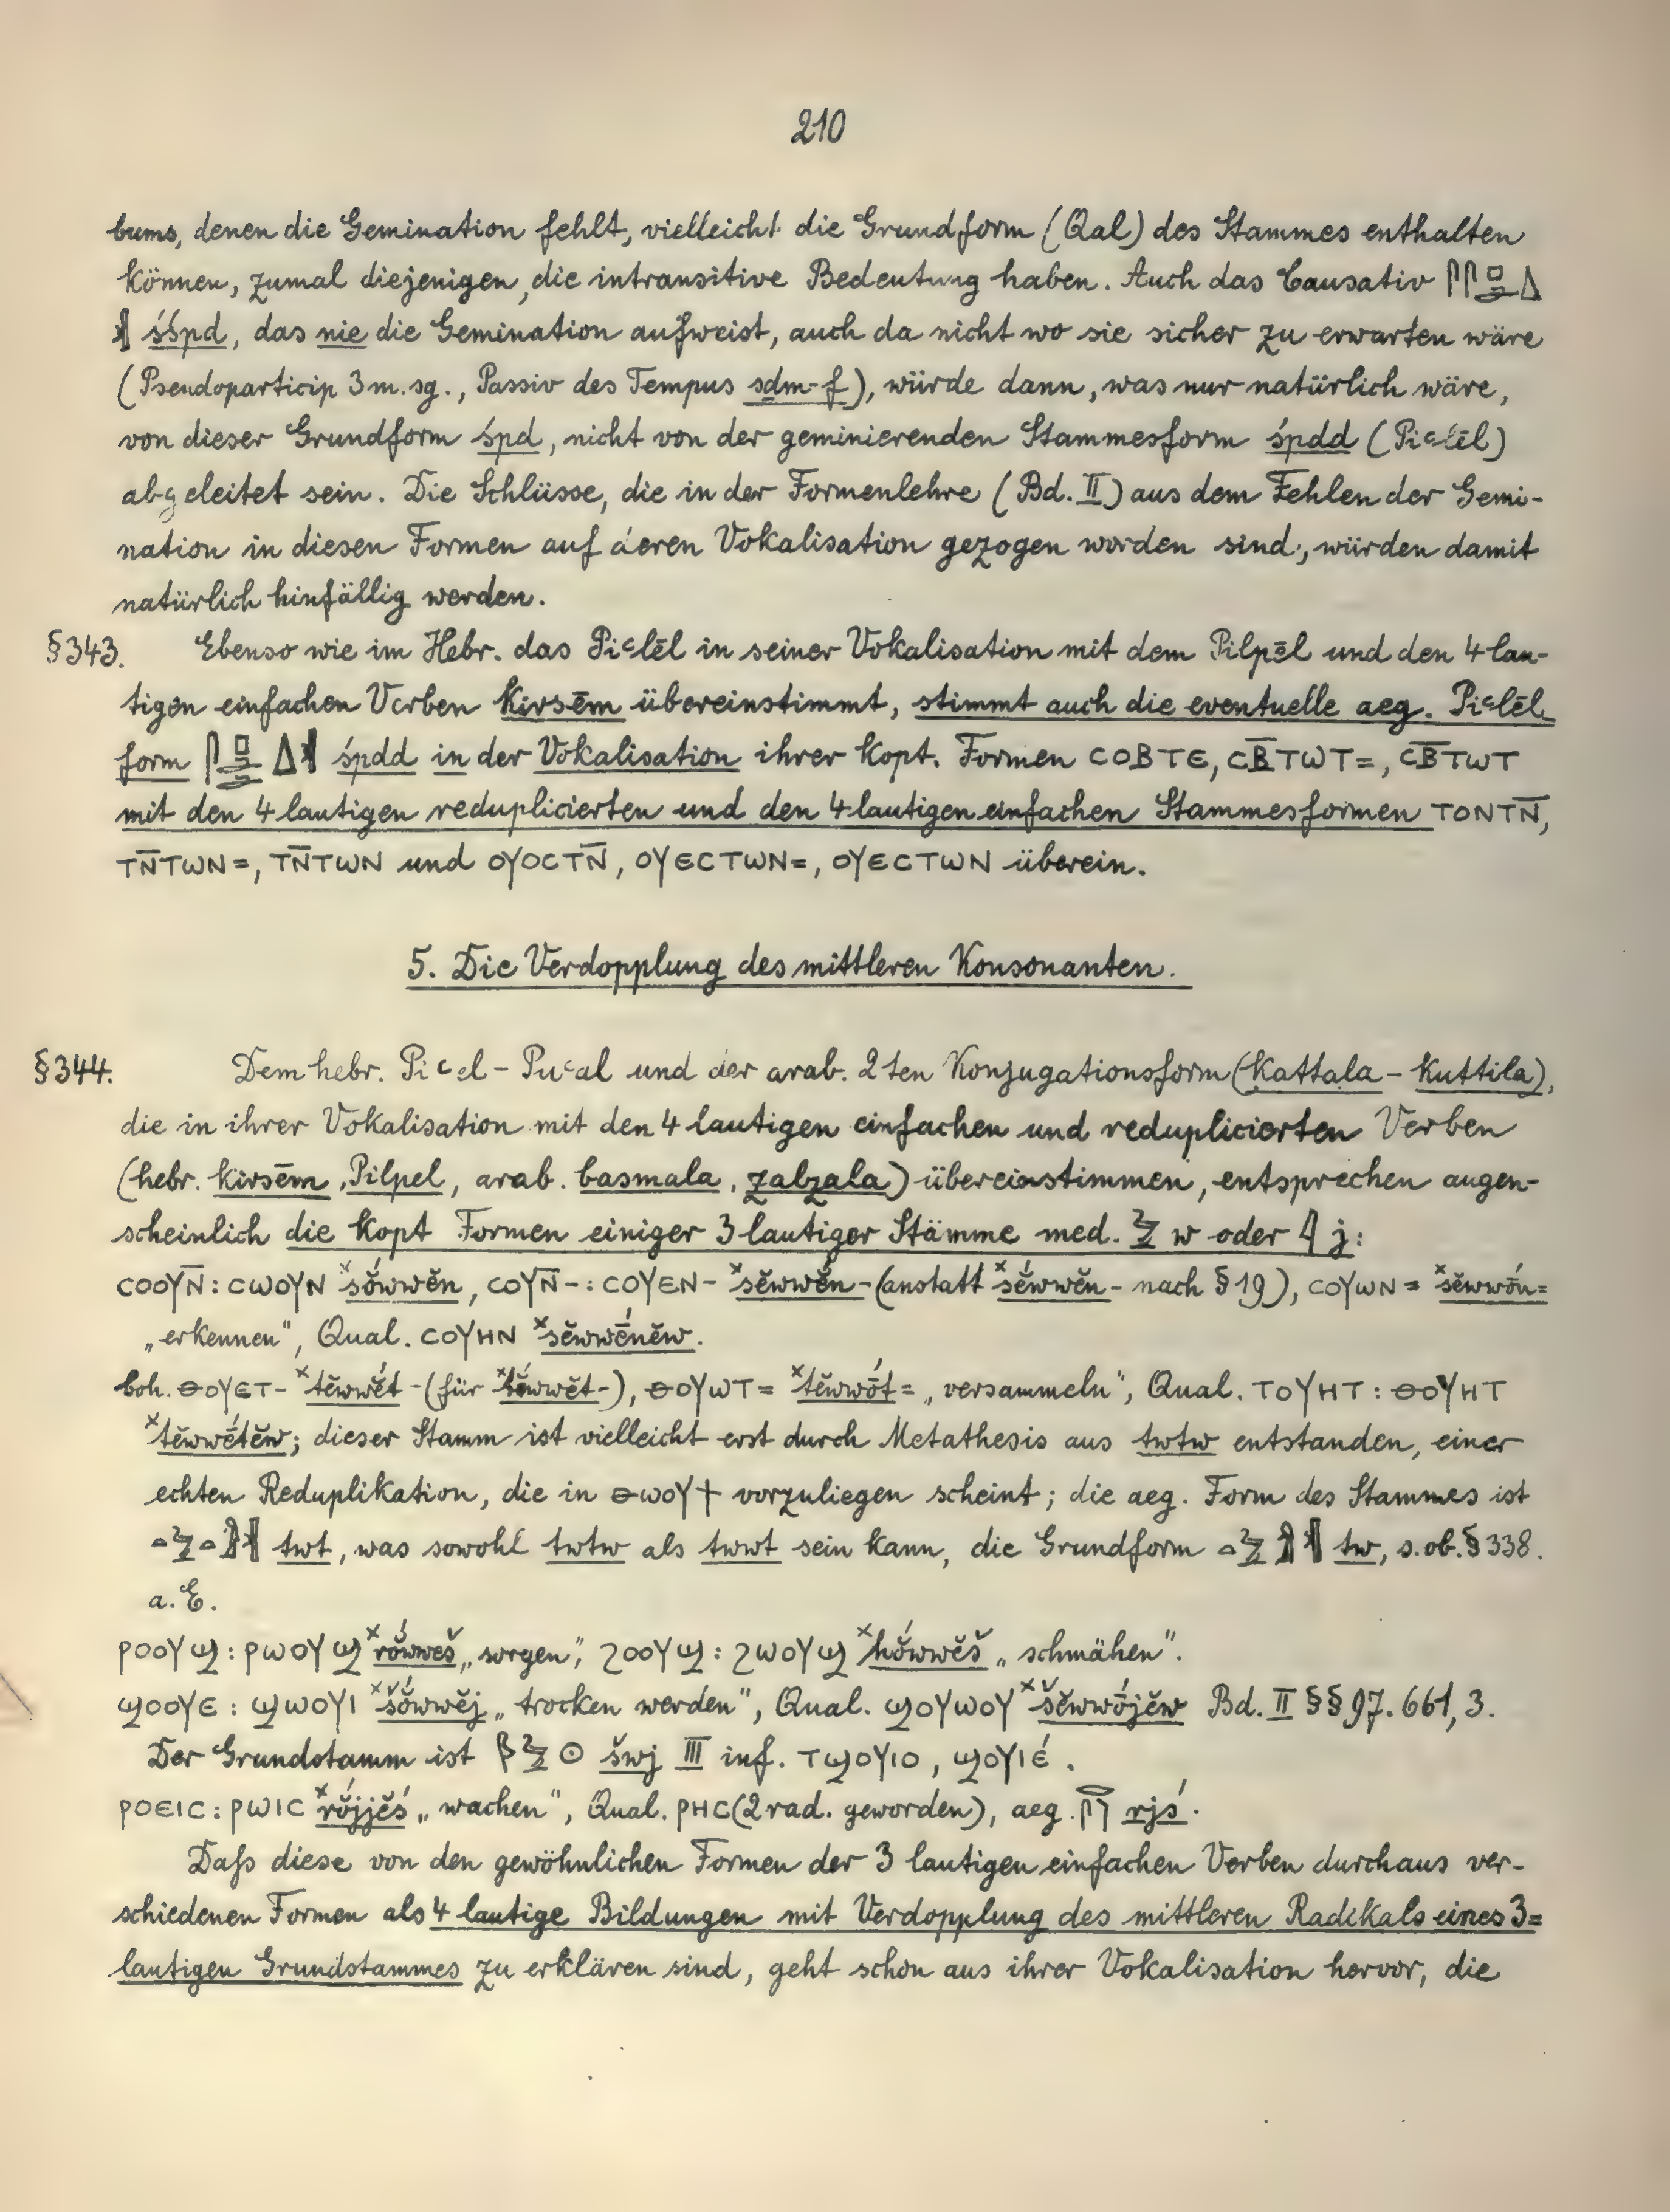 210
bums, denen die Gemination fehlt, vielleicht die Grundform (Qal) des Stammes enthalten
können, zumal diejenigen, die intransitive Bedeutung haben. Auch das Causativ 𓋴𓋴𓊪𓂧𓇮
𓏛 śśpd, das nie die Gemination aufweist, auch da nicht wo sie sicher zu erwarten wäre
(Pseudoparticip 3 m. sg., Passiv des Tempus sdm-f), würde dann, was nur natürlich wäre,
von dieser Grundform śpd, nicht von der geminierenden Stammesform śpdd (Piꜥlēl)
abgeleitet sein. Die Schlüsse, die in der Formenlehre (Bd. II) aus dem Fehlen der Gemi-
nation in diesen Formen auf deren Vokalisation gezogen worden sind, würden damit
natürlich hinfällig werden.
§343. Ebenso wie im Hebr. das Piꜥlēl in seiner Vokalisation mit dem Pilpēl und den 4 lau-
tigen einfachen Verben kirsēm übereinstimmt, stimmt auch die eventuelle aeg. Piꜥlēl-
form 𓋴𓊪𓂧𓇮𓏛 śpdd in der Vokalisation ihrer kopt. Formen ⲤⲞⲂⲦⲈ, ⲤⲂ̅ⲦⲰⲦ=, ⲤⲂ̅ⲦⲰⲦ
mit den 4 lautigen reduplicierten und den 4 lautigen einfachen Stammesformen ⲦⲞⲚⲦⲚ̅,
ⲦⲚ̅ⲦⲰⲚ=, ⲦⲚ̅ⲦⲰⲚ und ⲞⲨⲞⲤⲦⲚ̅, ⲞⲨⲈⲤⲦⲰⲚ=, ⲞⲨⲈⲤⲦⲰⲚ überein.
5. Die Verdopplung des mittleren Konsonanten.
§344. Dem hebr. Piꜥel – Puꜥal und der arab. 2ten Konjugationsform (kattala – kuttila),
die in ihrer Vokalisation mit den 4 lautigen einfachen und reduplicierten Verben
(hebr. kirsēm, Pilpel, arab. basmala, zalzala) übereinstimmen, entsprechen augen-
scheinlich die kopt Formen einiger 3 lautiger Stämme med. 𓅱 w oder 𓇋 j:
ⲤⲞⲞⲨⲚ̅ : ⲤⲰⲞⲨⲚ ˣsŏ́wwĕn, ⲤⲞⲨⲚ̅- : ⲤⲞⲨⲈⲚ- ˣsĕwwĕ́n- (anstatt ˣsĕ́wwĕn- nach § 19), ⲤⲞⲨⲰⲚ= ˣsĕwwṓn=
„erkennen", Qual. ⲤⲞⲨⲎⲚ ˣsĕwwḗnĕw.
boh. ⲐⲞⲨⲈⲦ- ˣtĕwwĕ́t- (für ˣtĕ́wwĕt-), ⲐⲞⲨⲰⲦ= ˣtĕwwṓt= „versammeln", Qual. ⲦⲞⲨⲎⲦ : ⲐⲞⲨⲎⲦ
ˣtĕwwḗtĕw; dieser Stamm ist vielleicht erst durch Metathesis aus twtw entstanden, einer
echten Reduplikation, die in ⲐⲰⲞⲨϮ vorzuliegen scheint; die aeg. Form des Stammes ist
𓏏𓅱𓏏𓀾𓏛 twt, was sowohl twtw als twwt sein kann, die Grundform 𓏏𓅱𓀾𓏛 tw, s. ob. § 338.
a. E.
ⲢⲞⲞⲨϢ : ⲢⲰⲞⲨϢ ˣrŏ́wwĕš „sorgen", ϨⲞⲞⲨϢ : ϨⲰⲞⲨϢ ˣhŏ́wwĕš „schmähen".
ϢⲞⲞⲨⲈ : ϢⲰⲞⲨⲒ ˣšŏ́wwĕj „trocken werden", Qual. ϢⲞⲨⲰⲞⲨ ˣšĕwwṓjĕw Bd. II §§ 97. 661, 3.
Der Grundstamm ist 𓆄𓅱𓇳 šwj III inf. ⲦϢⲞⲨⲒⲞ, ϢⲞⲨⲒⲈ́.
ⲢⲞⲈⲒⲤ : ⲢⲰⲒⲤ ˣrŏ́jjĕś „wachen", Qual. ⲢⲎⲤ (2 rad. geworden), aeg. 𓂋𓋴 rjś.
Daß diese von den gewöhnlichen Formen der 3 lautigen einfachen Verben durchaus ver-
schiedenen Formen als 4 lautige Bildungen mit Verdopplung des mittleren Radikals eines 3=
lautigen Grundstammes zu erklären sind, geht schon aus ihrer Vokalisation hervor, die